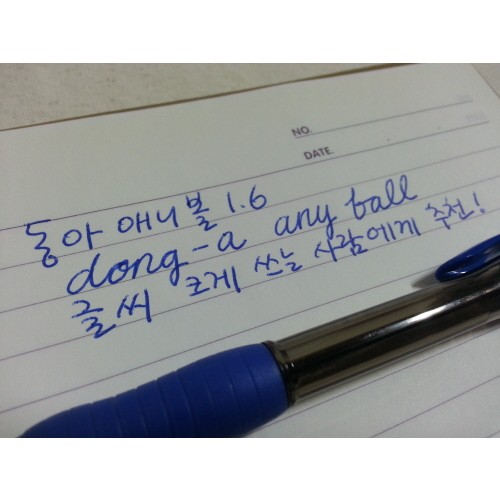 NO.
DATE.
동아 애니볼 1.6
dong-a any ball
글씨 크게 쓰는 사람에게 추천!